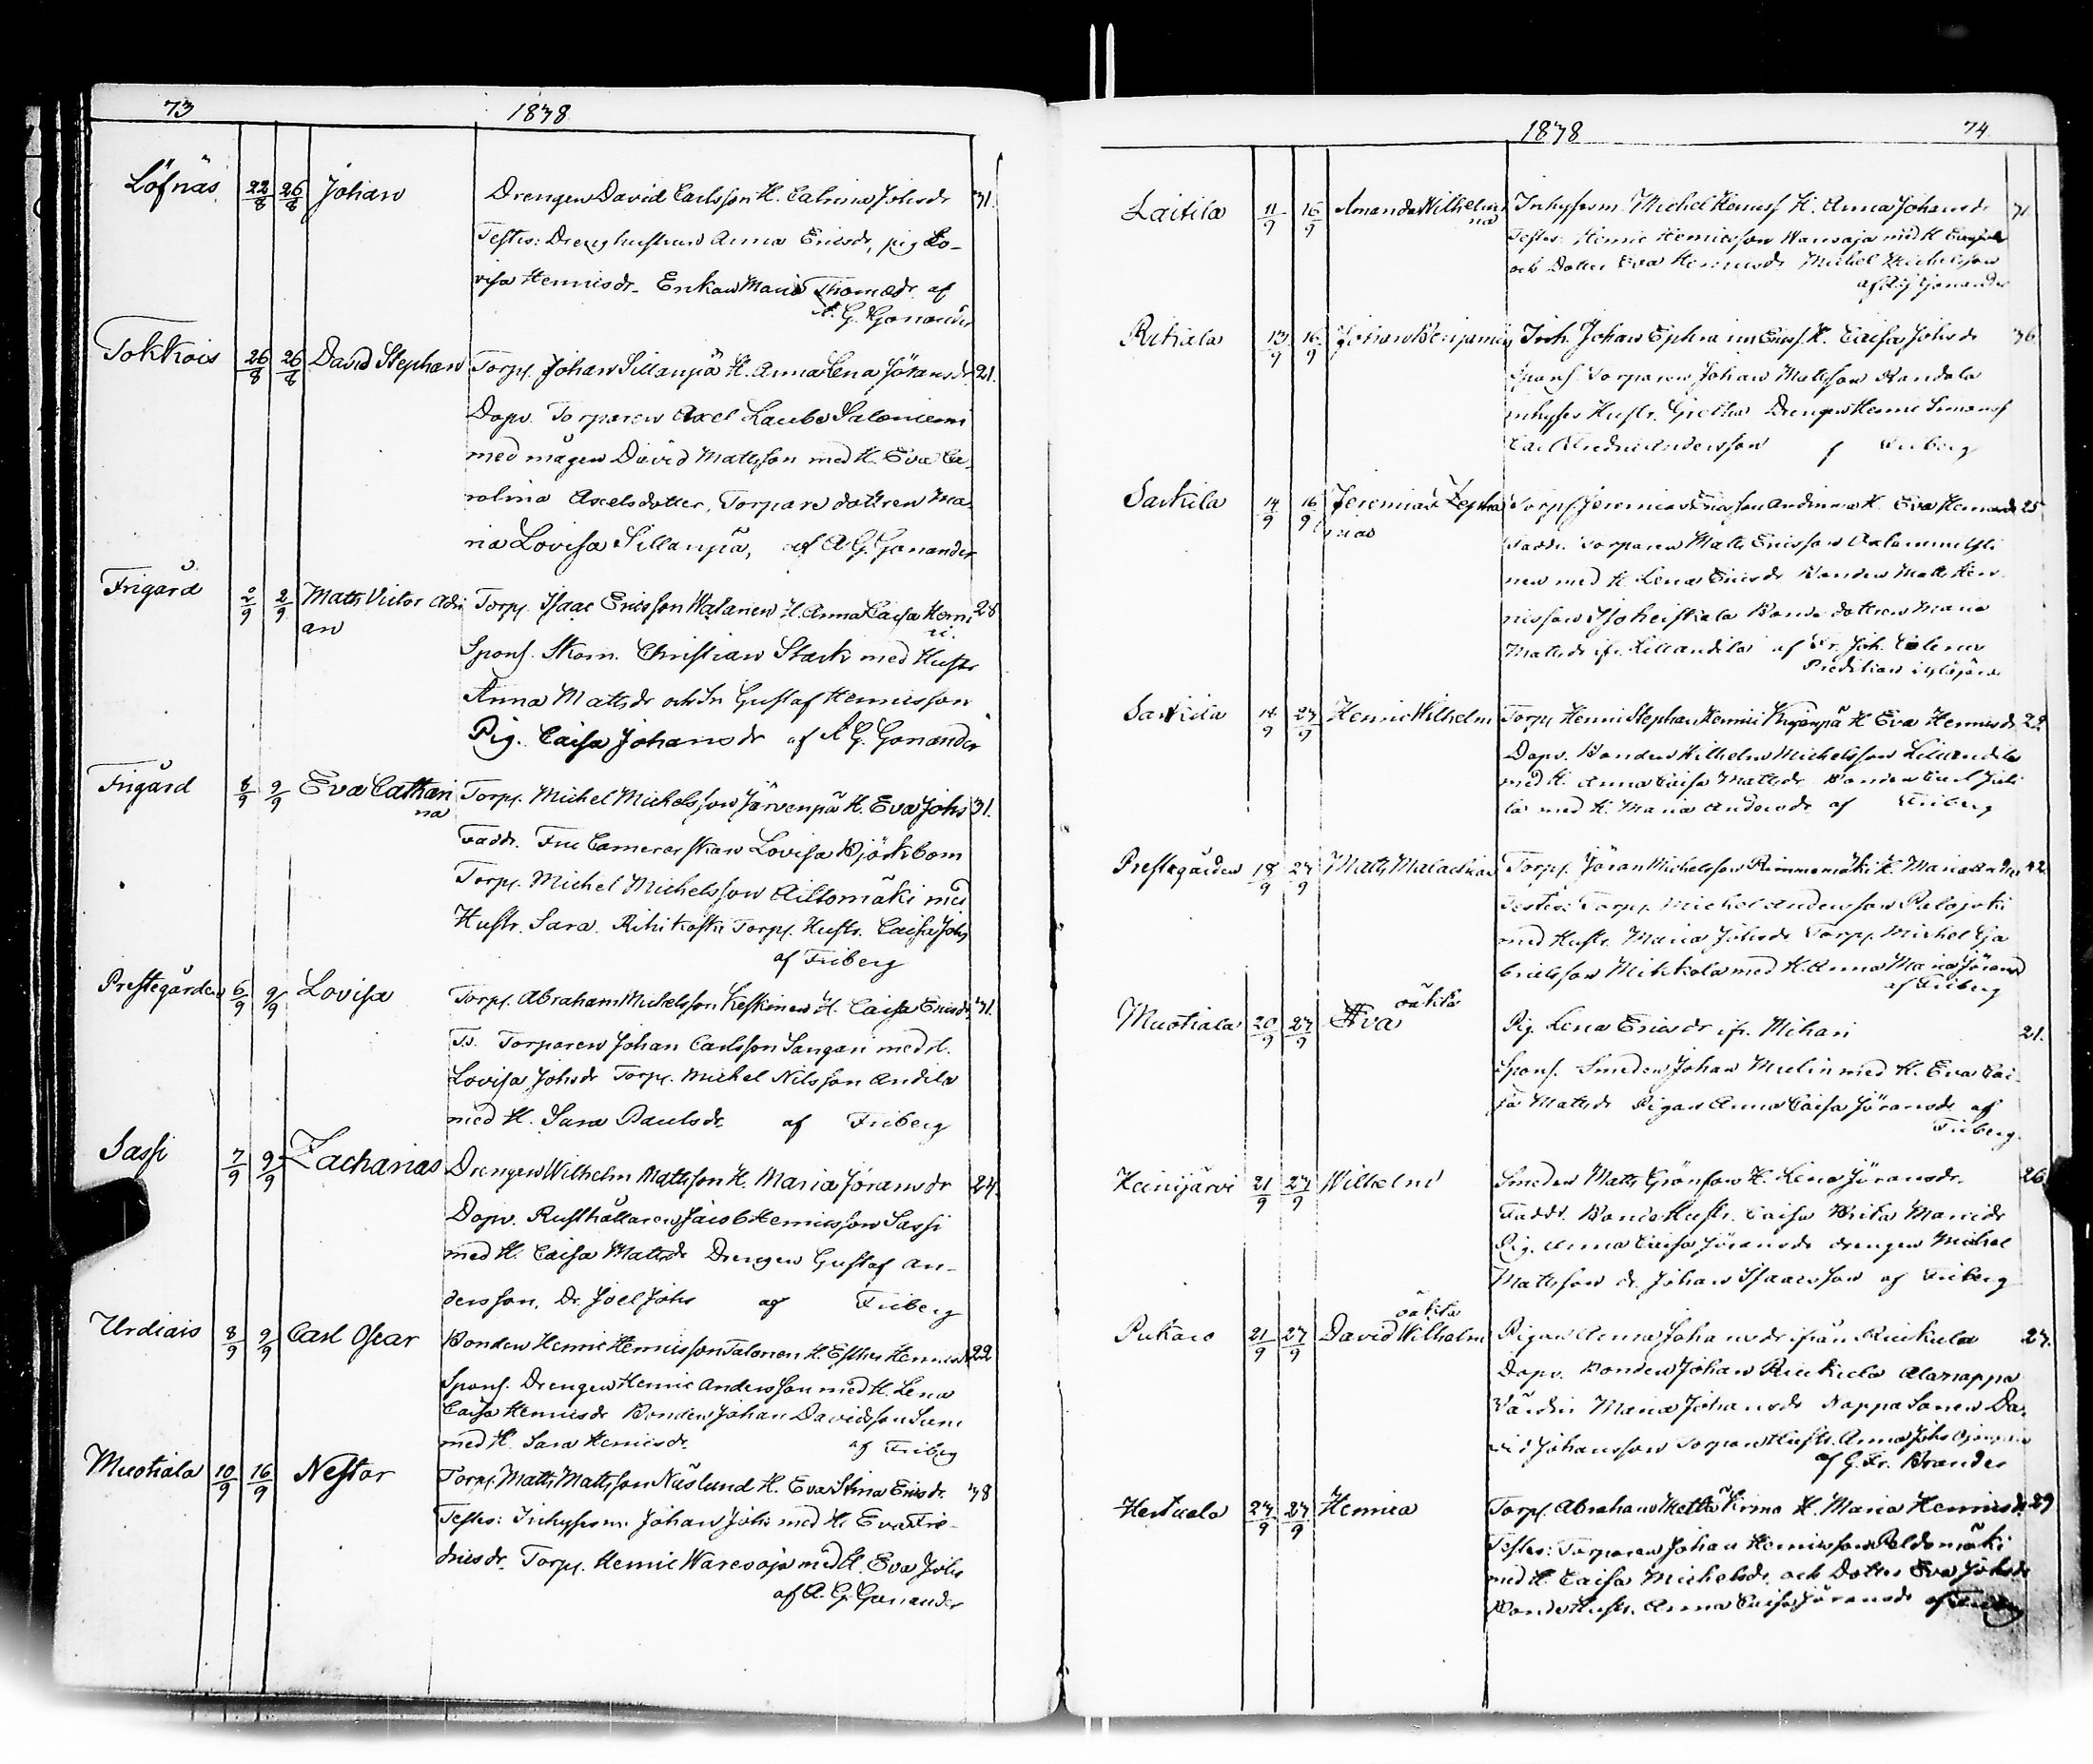 73 1838
Löfnäs 22/8 26/8 Johan Drengen David Carlsson H. Catrina Johsdr 31.
Testes: Dreng hustrun Anna Ericsdr, pig Lo-
visa Henricsdr. Enkan Maria Thomædr. af
A. G. Gonander
Tokkois 26/8 26/8 David Stephan Torp. Johan Sillanpä H. Anna Lena Jöransdr. 21.
Dopv. Torparen Axel Saloniemi
med mågen David Mattsson med H. Eva Ca-
rolina Axelsdotter, Torpare dottren Ma-
ria Lovisa Sillanpä, af A G. Gonander
Frigård 2/9 2/9 Matts Victor Adri Torp. Isaac Ericsson H. Anna Caisa Henri 28
an
Spons. Skom. Christian Stark med Hustr
Anna Mattsdr och Gustaf Henricsson
Pig. Caisa Johansdr af A G. Gonander
Frigård 8/9 9/9 Eva Cathari Torp. Michel Michelsson Järvenpä H. Eva Johs 31.
na
Faddr. Fru Camererskan Lovisa Björkbom
Torp. Michel Michelsson Ailtomäki med
Hustr. Sara. Torp. Hustr. Caisa Johs
af Friberg
Prestegården 6/9 9/9 Lovisa Torp. Abraham Michelsson Keskinen H. Caisa Ericsdr. 31.
Ts. Torparen Johan Carlsson Sangari med H.
Lovisa Johsdr Torp. Michel Nilsson Andila
med H. Sara Paulsdr. af Friberg
Sassi 7/9 9/9 Zacharias Drengen Wilhelm Mattsson H. Maria Jöransdr 24.
Dopv. Rusthållaren Jacob Henricsson Sassi
med H. Caisa Mattsdr Drengen Gustaf An-
dersson, Dr. Joel Johs af Friberg
Urdiais 8/9 9/9 Carl Oscar Bonden Henric Henricsson Talonen H. Esther Henricsdr 22
Spons. Drengen Henric Andersson med H. Lena
Caisa Henricsdr Bonden Johan Davidsson
med H. Sara Henricsdr. af Friberg
Muotiala 10/9 16/9 Nestor Torp. Matts Mattsson Näslund H. Eva Stina Ericsdr. 38
Testes: Inhysesm. Johan Johs med H. Eva Fre-
dricsdr. Torp. Henric Warevoja med H. Eva Johs
af A. G. Gonander
1838 74.
Laitila 11/9 16/9 Amanda Wilhelmi Inhysesm. Michel Henricss H. Anna Johansdr 31
na
Testes: Henric Henricsson med H.
och Dotter Eva Henricsdr Michel Michelsson
af A G Gonander
Rikala 13/9 16/9 Johan Benjamin Inh. Johan Ephraim Ericss. H. Caisa Johsdr 36
Spons. Torparen Johan Mattsson Kandola
inhyses Hustr. Gretha Drengen Henric Simonss
Carl Fredric Andersson f Friberg
Sarkila 14/9 16/9 Jeremias Zepha Torp. Jeremias Ericsson H. Eva Henricsdr 25
nias
Faddr. Torparen Matts Ericsson
nen med H. Lena Ericsdr Bonden Matts Hen-
ricsson Bonde dottren Maria
Mattsdr ifr. Killandila af Joh.
Sarkila 14/9 27/9 Henric Wilhelm Torp. Henric Stephan Henrics H. Eva Henricsdr. 22
Dopv. Bonden Wilhelm Michelsson
med H. Anna Caisa Mattsdr Bonden Carl
la med H. Maria Andersdr af Friberg
Prestegården 18/9 27/9 Matts Malachias Torp. Jöran Michelsson H. Maria Andersdr 42.
Testes: Torp. Michel Andersson Palojoki
med Hustr. Maria Johsdr Torp. Michel Ga
brielsson Mihkola med H. Anna Maria Jörans
af Friberg
Muotiala 20/9 27/9 oäkta Eva Pig. Lena Ericsdr ifr. Mihari 21.
Spons. Smeden Johan Mulin med H. Eva Cai-
sa Mattsdr Pigan Anna Caisa Jöransdr. af
Friberg.
Heinijärvi 21/9 27/9 Wilhelm Smeden Matts Grönfors H. Lena Jöransdr. 26
Faddr. Bonde Hustr. Caisa Brita
Pig. Anna Caisa Jöransdr drengen Michel
Mattsson dr. Johan Isaacsson af Friberg
Pukaro 21/9 27/9 oäkta David Wilhelm Pigan Anna Johansdr ifrån Ruokula 27.
Dopv. Bonden Johan Alanappa
Värdin Maria Johansdr Nappa Sonen Da-
vid Johansson Torpare Hustr. Anna Johs
af G. Fr. Brander
Hertuala 27/9 27/9 Henrica Torp. Abraham H. Maria Henricsdr. 29
Testes: Torparen Johan Henricsson Peldomäki
med H. Caisa Michelsdr. och Dotter Eva Johsdr
Bonde Hustr. Anna Caisa Jöransdr af Friberg